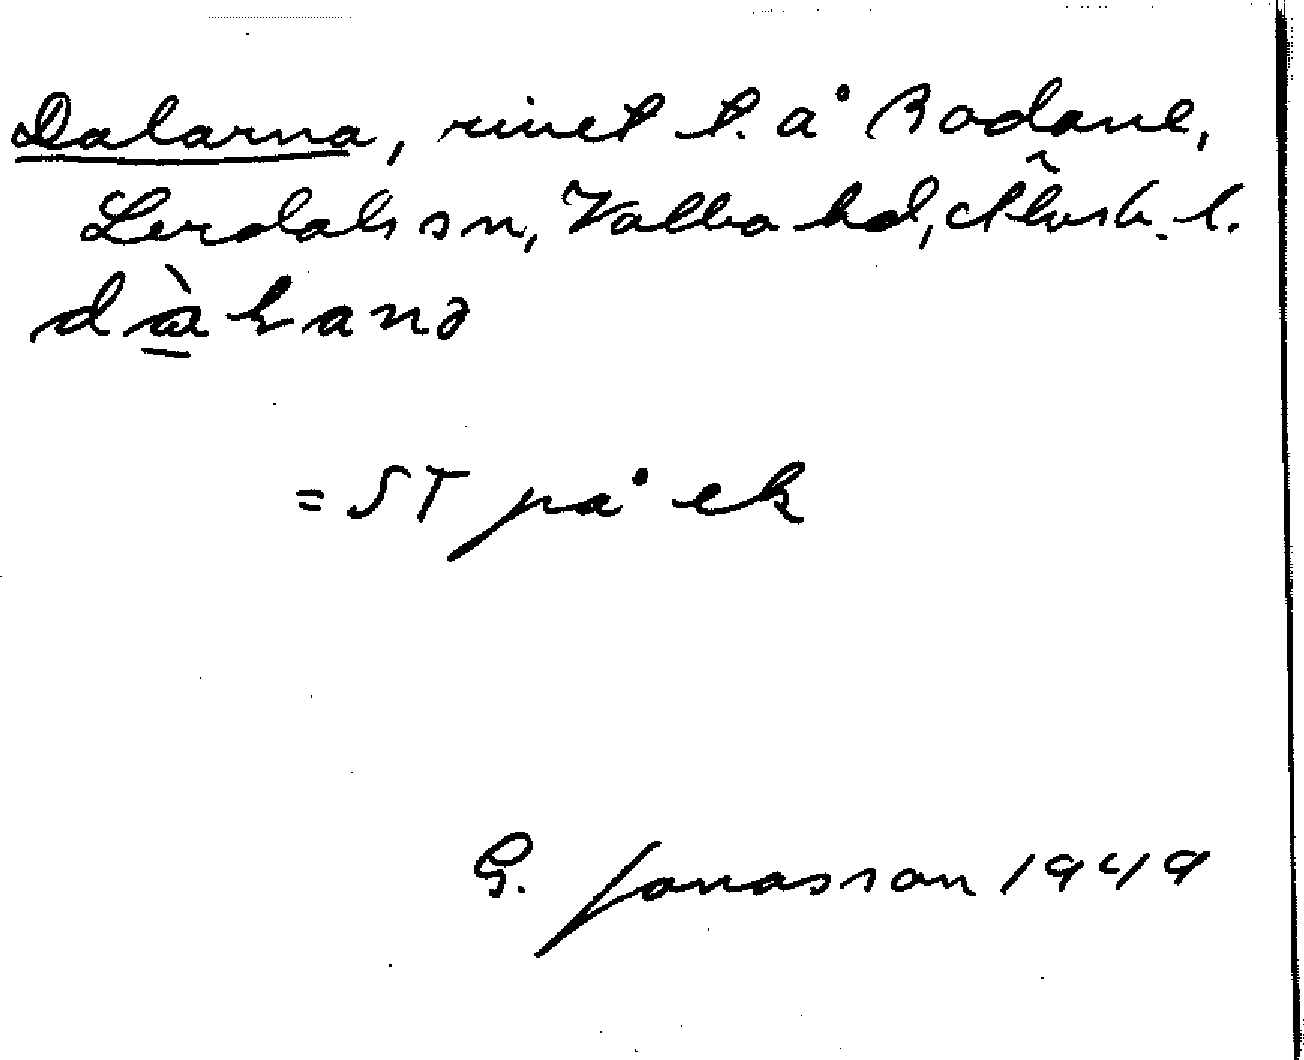 Dalarna, rivet t. å Bodane,
Lerdals sn, Valbo hd, Älvsb. l.
dàɷanə
= ST på ek
G. Jonasson 1949